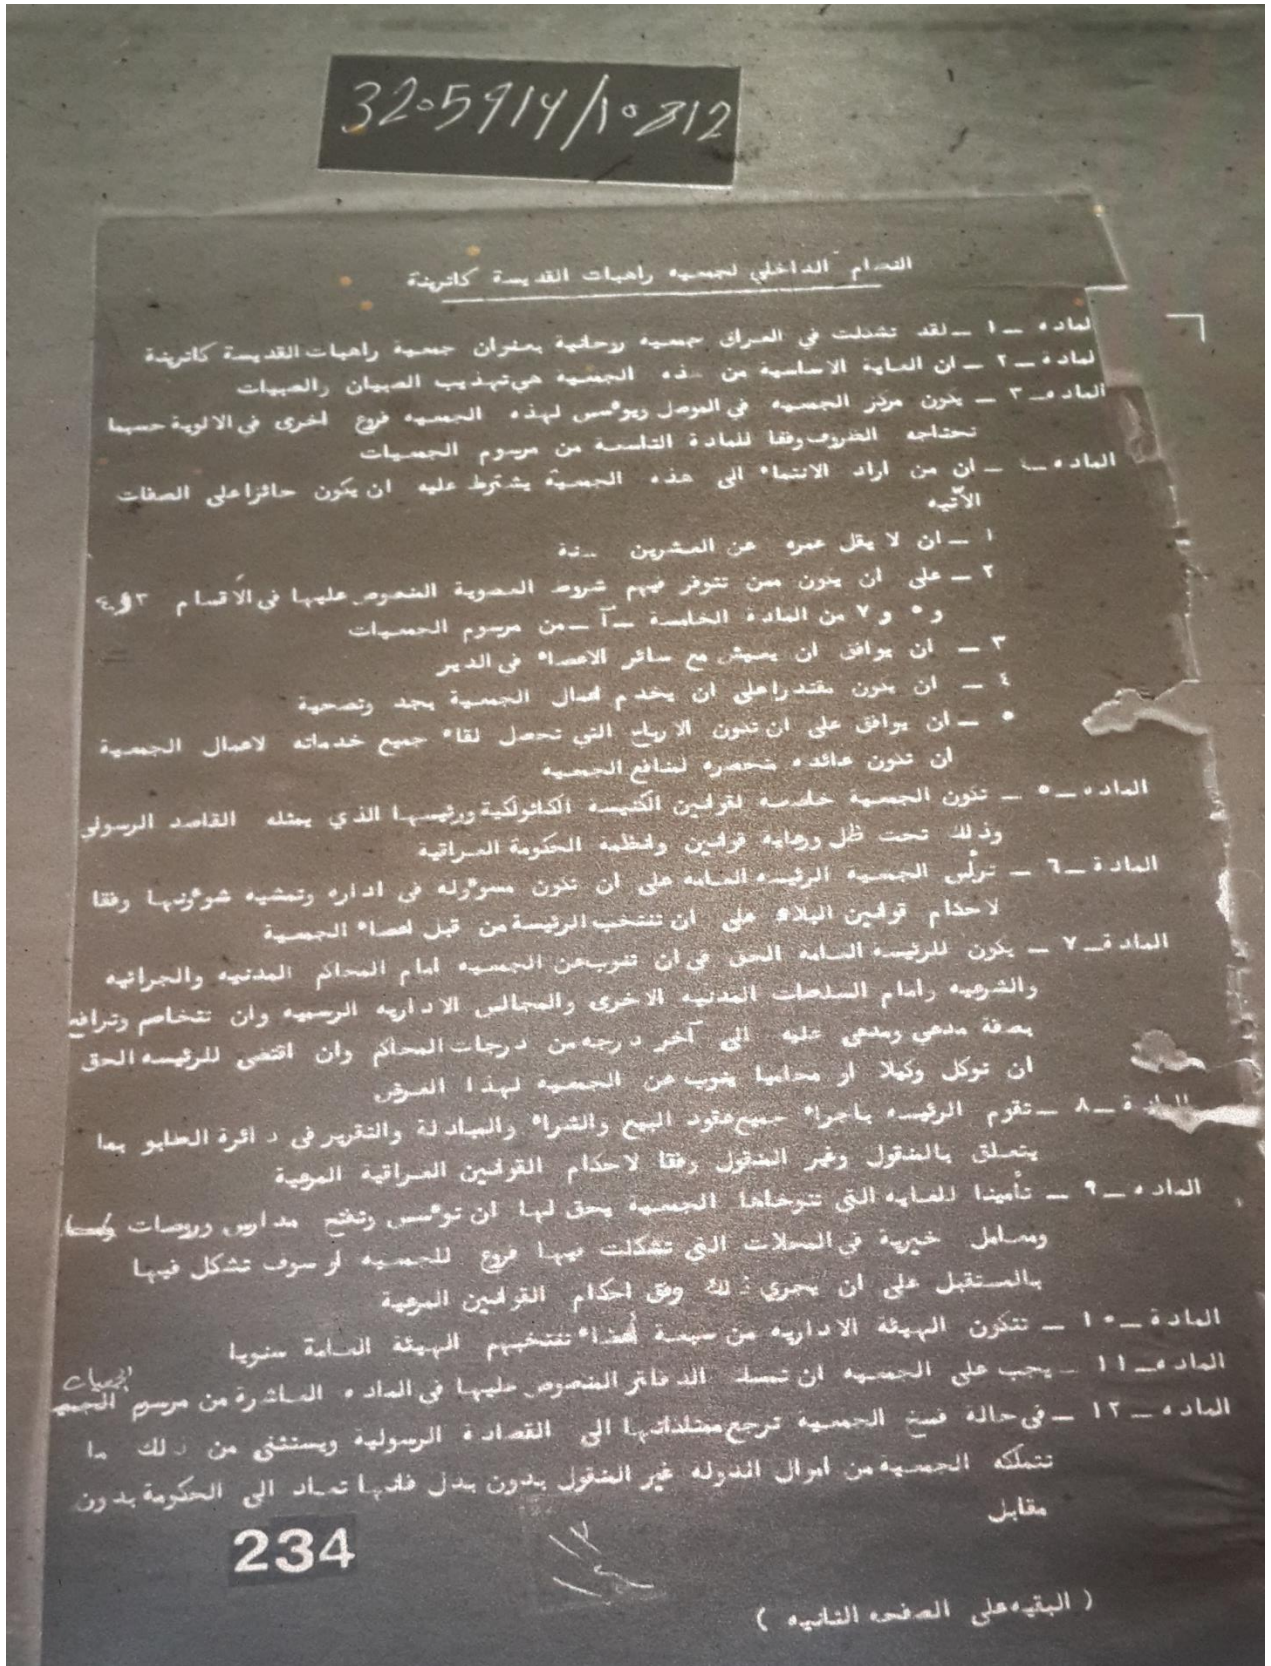 3205914/10812
النظام الداخلي لجمعيه راهبات القديسة كاترينة
لماده ــ ١ ــ لقد تشكلت في العراق جمعيه روحانية بعنوان جمعية راهبات القديسة كاترينة
لمادة ــ ٢ ــ ان الغاية الاساسية من هذه الجمعية هي تهذيب الصبيان والصبيات
الماده ــ ٣ ــ يكون مركز الجمعيه في الموصل ويوءسس لهذه الجمعيه فروع اخرى في الالوية حسبما
تحتاجه الظروف وفقا للمادة التاسعة من مرسوم الجمعيات
الماده ــ ٤ ــ ان من اراد الانتماء الى هذه الجمعية يشترط عليه ان يكون حائزا على الصفات
الآتيه
١ ــ ان لا يقل عمره عن العشرين سنة
٢ ــ على ان يكون ممن تتوفر فيهم شروط العضوية المنصوص عليها في الأقسام ٣ و ٤
و ٥ و ٧ من المادة الخامسة ــ آ ــ من مرسوم الجمعيات
٣ ــ ان يوافق ان يعيش مع سائر الاعضاء في الدير
٤ ــ ان يكون مقتدرا على ان يخدم اعمال الجمعية بجد وتضحية
٥ ــ ان يوافق على ان تكون الارباح التي تحصل لقاء جميع خدماته لاعمال الجمعية
ان تكون عائده منحصره لمنافع الجمعيه
الماده ــ ٥ ــ تكون الجمعية خاضعه لقوانين الكنيسة الكاثولكية ورئيسها الذي يمثله القاصد الرسولي
وذلك تحت ظل ورعاية قوانين وانظمه الحكومة العراقية
المادة ــ ٦ ــ ترأس الجمعية الرئيسه العامه على ان تكون مسوءوله في اداره وتمشيه شوءونها وفقا
لاحكام قوانين البلاد على ان تنتخب الرئيسة من قبل اعضاء الجمعية
المادة ــ ٧ ــ يكون للرئيسه العامه الحق في ان تنوب عن الجمعيه امام المحاكم المدنيه والجزائيه
والشرعيه وامام السلطات المدنيه الاخرى والمجالس الاداريه الرسميه وان تتخاصم وترافع
بصفة مدعي ومدعى عليه الى آخر درجه من درجات المحاكم وان اقتضى للرئيسه الحق
ان توكل وكيلا او محاميا ينوب عن الجمعيه لهذا الغرض
المادة ــ ٨ ــ تقوم الرئيسه باجراء جميع عقود البيع والشراء والمبادلة والتقرير في دائرة الطابو بما
يتعلق بالمنقول وغير المنقول وفقا لاحكام القوانين العراقية المرعية
الماده ــ ٩ ــ تأمينا للغايه التي تتوخاها الجمعية يحق لها ان توءسس وتفتح مدارس وروضات
ومعامل خيرية في المحلات التي تشكلت فيها فروع للجمعيه او سوف تشكل فيها
بالمستقبل على ان يجري ذلك وفق احكام القوانين المرعية
المادة ــ ١٠ ــ تتكون الهيئة الاداريه من سبعة أعضاء تنتخبهم الهيئة العامة سنويا
الماده ــ ١١ ــ يجب على الجمعيه ان تمسك الدفاتر المنصوص عليها في الماده العاشرة من مرسوم الجمعيات
الماده ــ ١٢ ــ في حالة فسخ الجمعية ترجع ممتلكاتها الى القصادة الرسولية ويستثنى من ذلك ما
تتملكه الجمعية من اموال الدوله غير المنقول بدون بدل فانها تعاد الى الحكومة بدون
مقابل
234
( البقيه على الصفحه الثانيه )